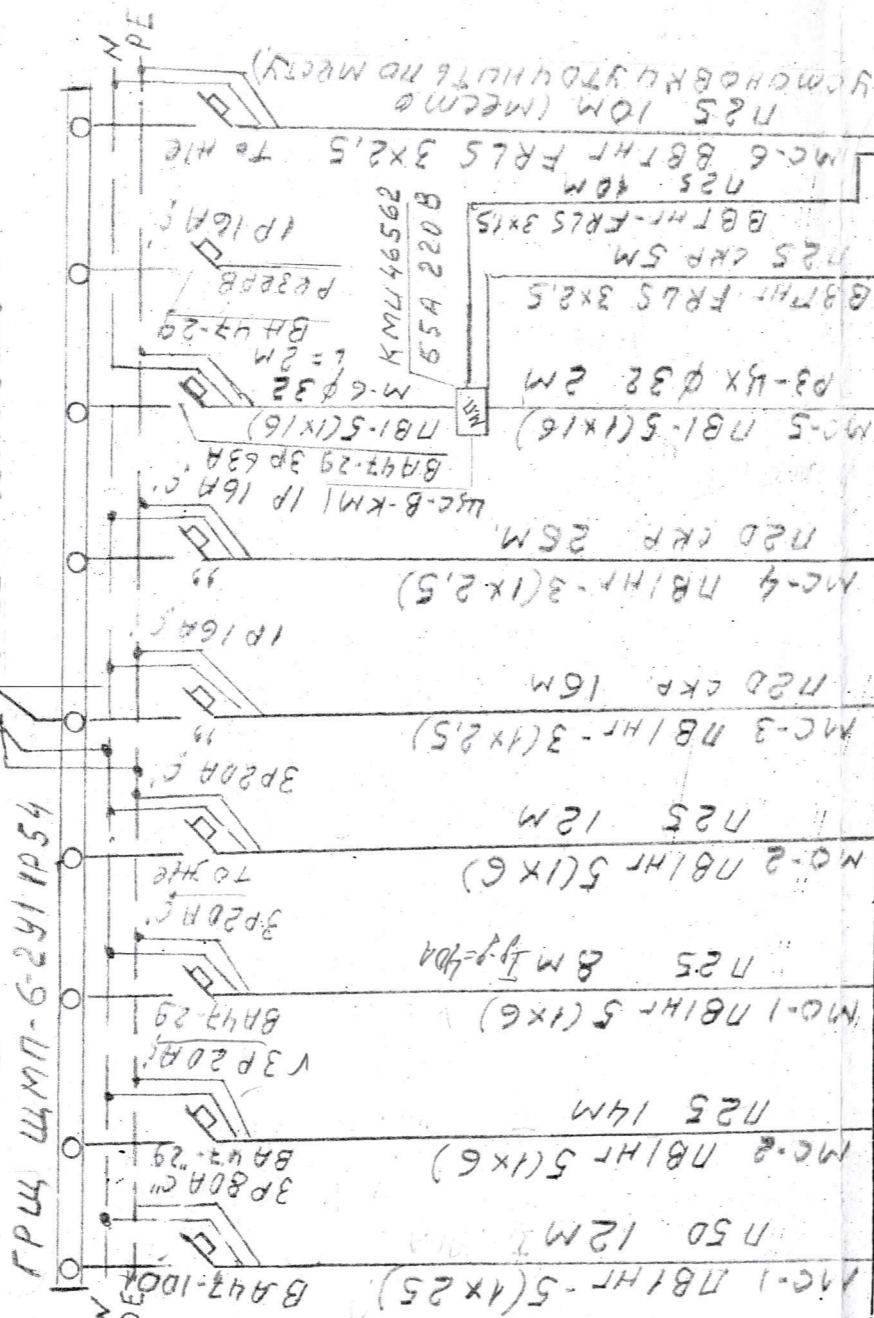 ГРЩ ЩМП-6-2У1 IP54
N
PE
МС-1 ПВ1НГ-5(1х25)
ВА47-100
П50 12М
3Р80А "С"
ВА47-29
МС-2 ПВ1НГ 5(1х6)
П25 14М
3Р20А "С"
ВА47-29
МО-1 ПВ1НГ 5(1х6)
П25 8М Iуд=40А
3Р20А С"
то же
МО-2 ПВ1НГ 5(1х6)
" П25 12М
3Р20А С"
"
МС-3 ПВ1НГ-3(1х2,5)
П20 скр. 16М
1Р16А С"
"
МС-4 ПВ1НГ-3(1х2,5)
П20 скр 26М.
ЩС-В-КМ1 1Р 16А С"
ВА47-29 3Р 63А
МС-5 ПВ1-5(1х16)
ПВ1-5(1х16)
РЗ-ЦХ ф32 2М
М-6 ф32
L=2М
МП
КМИ 46562
65А 220В
ВВГНГ-FRLS 3х2,5
П25 скр 5М
ВА47-29
ВВГНГ-FRLS 3х1,5
П25 10М
1Р16А С"
МС-6 ВВГНГ FRLS 3х2,5 то же
П25 10М (место
установки уточнить по месту)
N
PE